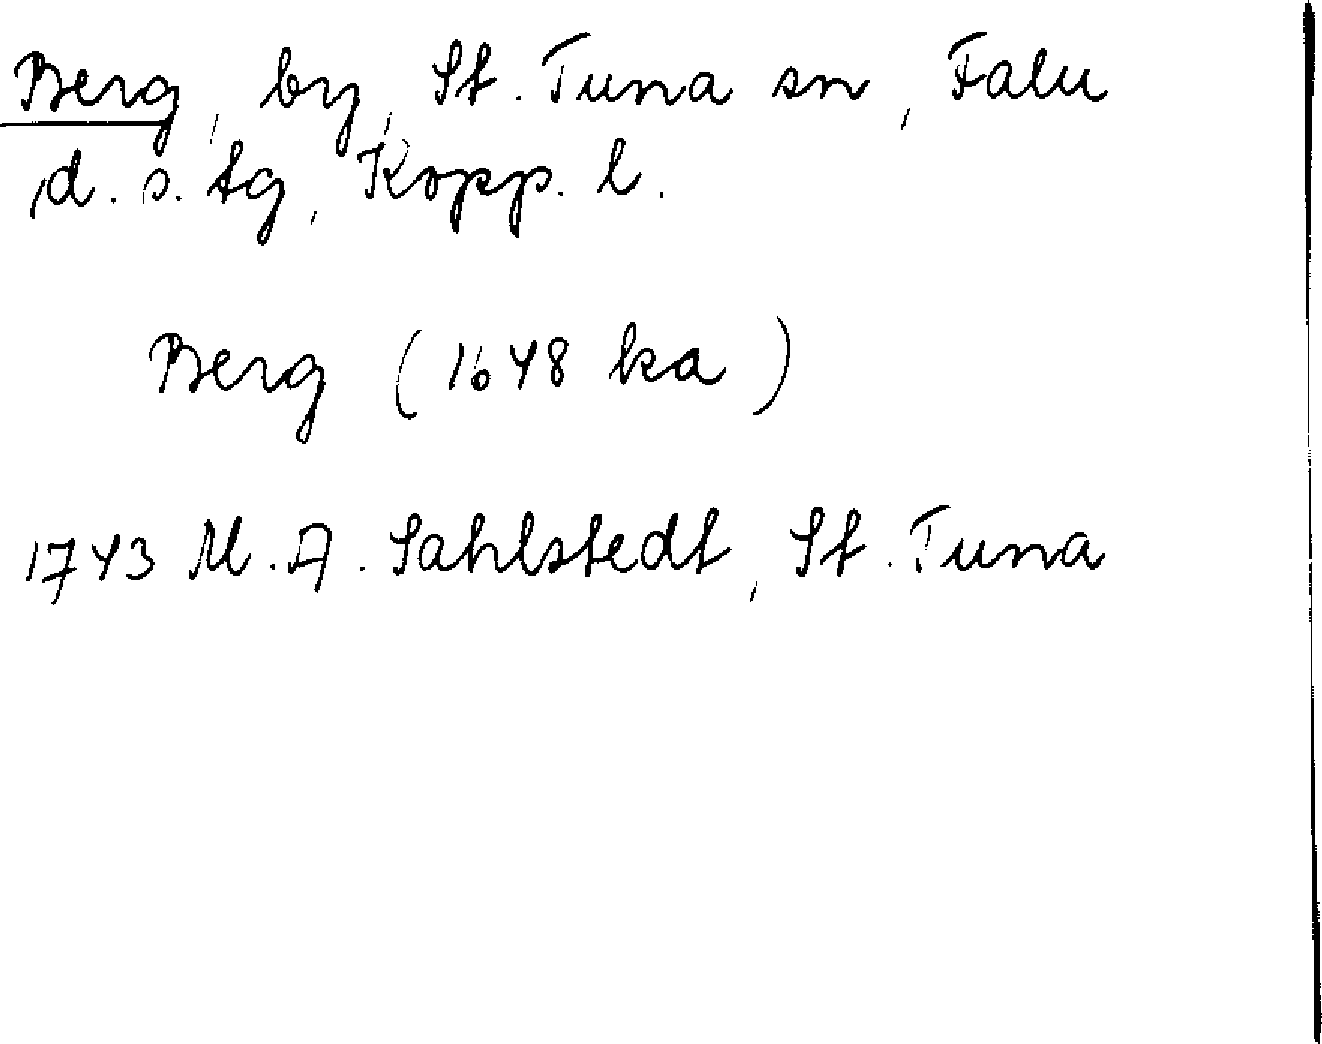 Berg, by, St. Tuna sn, Falu
d. s. tg, Kopp. l.
Berg (1648 ka)
1743 M. A. Sahlstedt, St. Tuna